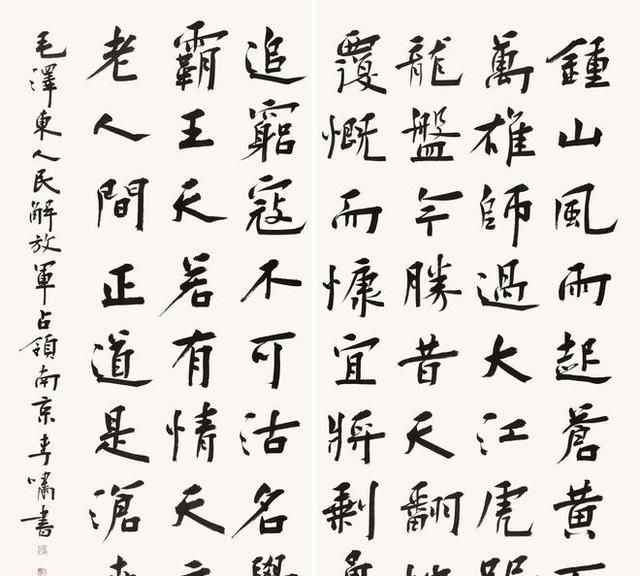 鍾山風雨起蒼黃百
萬雄師過大江虎踞
龍盤今勝昔天翻地
覆慨而慷宜將剩勇
追窮寇不可沽名學
霸王天若有情天亦
老人間正道是滄桑
毛澤東人民解放軍占領南京嘯書